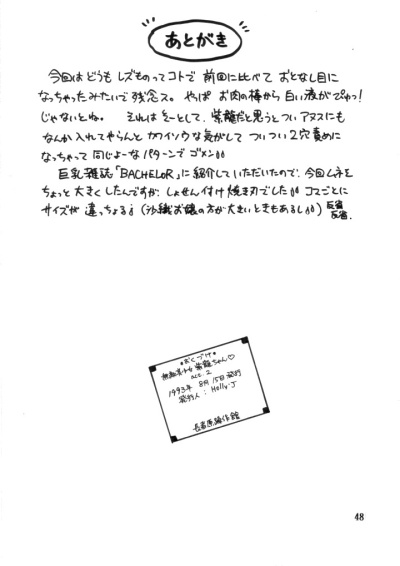 あとがき
今回はどうもレズものってコトで前回に比べておとなし目に
なっちゃったみたいで残念ス。やっぱお肉の棒から白い液がぴゅっ!
じゃないとね。それはそーとして、紫龍だと思うとついアヌスにも
なんか入れてやらんとカワイソウな気がしてついつい2穴責めに
なっちゃって同じよーなパターンでゴメン
巨乳雑誌「BACHELOR」に紹介していただいたので、今回ムネを
ちょっと大きくしたんですが、しょせん付け焼き刃でした コマごとに
サイズが違っちょる(沙織お嬢の方が大きいときもあるし)反省反省.
おくづけ
紫龍ちゃん♡
act.2
1993年 8月15日発行
発行人:Holly-J
48